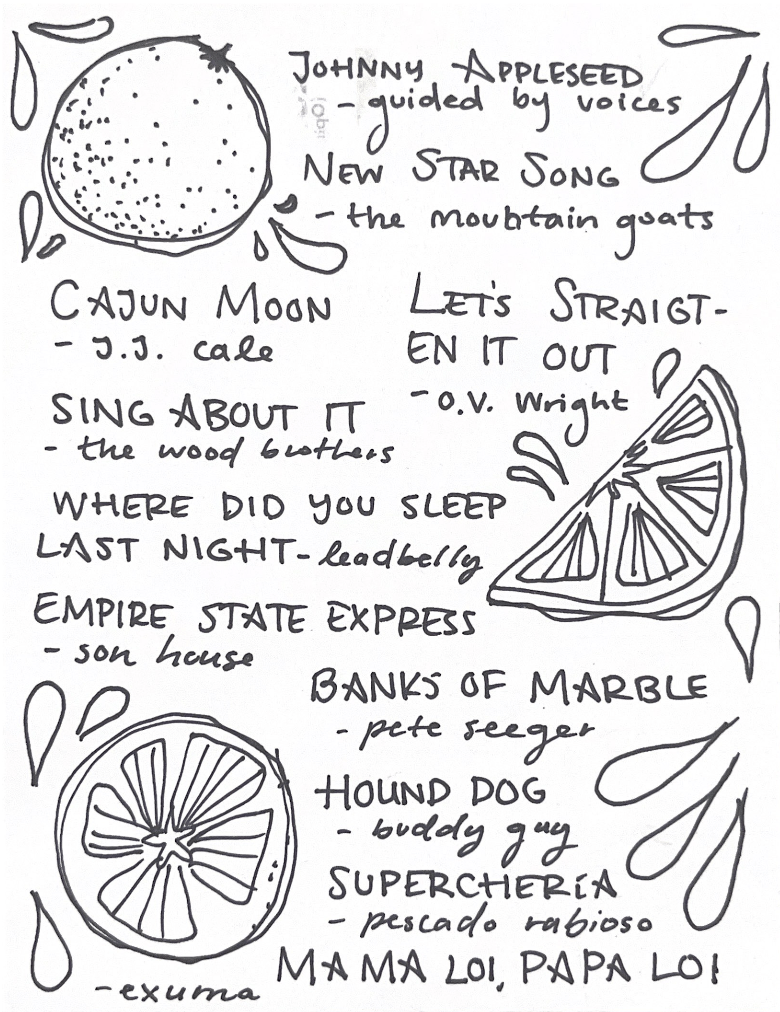 JOHNNY APPLESEED
- guided by voices
NEW STAR SONG
- the mountain goats
CAJUN MOON
- J.J. cale
LET'S STRAIGT-
EN IT OUT
- O.V. Wright
SING ABOUT IT
- the wood brothers
WHERE DID YOU SLEEP
LAST NIGHT - leadbelly
EMPIRE STATE EXPRESS
- son house
BANKS OF MARBLE
- pete seeger
HOUND DOG
- buddy guy
SUPERCHERÍA
- pescado rabioso
MAMA LOI, PAPA LOI
- exuma